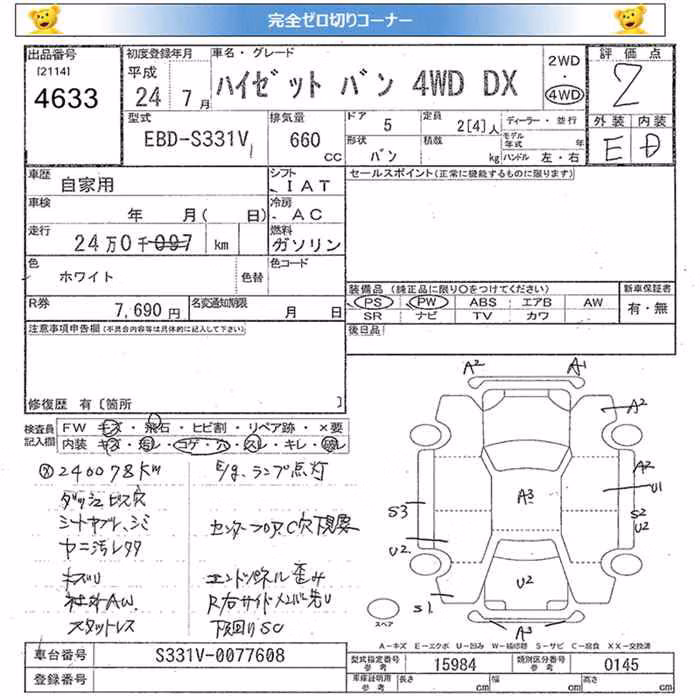 完全ゼロ切りコーナー
出品番号
[2114]
4633
初度登録年月
平成
24年7月
車名・グレード
ハイゼット バン 4WD DX
2WD
・
4WD
評価点
2
外装 内装
E D
型式
EBD-S331V
排気量
660
CC
ドア
5
定員
2[4]人
ディーラー・並行
モデル
年式 年
形状
バン
積載
kg
ハンドル 左・右
車歴
自家用
シフト
IAT
車検
年 月( 日)
冷房
AC
走行
24万0千097 km
燃料
ガソリン
色
ホワイト
色替
色コード
R券
7,690円
名変通知期限
月 日
セールスポイント(正常に機能するものに限ります)
装備品(純正品に限り○をつけてください)
PS PW ABS エアB AW
SR ナビ TV カワ
新車保証書
有・無
後日品
注意事項申告欄(不具合内容等は具体的に記入して下さい)
修復歴 有〔箇所 〕
検査員
記入欄
FW キズ・飛石・ヒビ割・リペア跡・×要
内装 キズ・汚レ・コゲ・穴・スレ・キレ・
240078km
ダッシュビス穴
シートヤブレ、シミ
ヤニ汚レタタ
キズU
社外AW
スタットレス
E/g.ランプ点灯
センターフロアC穴下現要
エンドパネル歪み
R右サイドメンバー先U
下回りSC
A2 A1
A2
A2
U1
S2
U2
A3
S3
U2
U2
S1
A3
スペア
A-キズ E-エクボ U-凹み W-補修跡 S-サビ C-腐食 XX-交換済
車台番号
S331V-0077608
登録番号
型式指定番号
参考
15984
類別区分番号
参考
0145
車庫証明用
参考
長さ cm 幅 cm 高さ cm